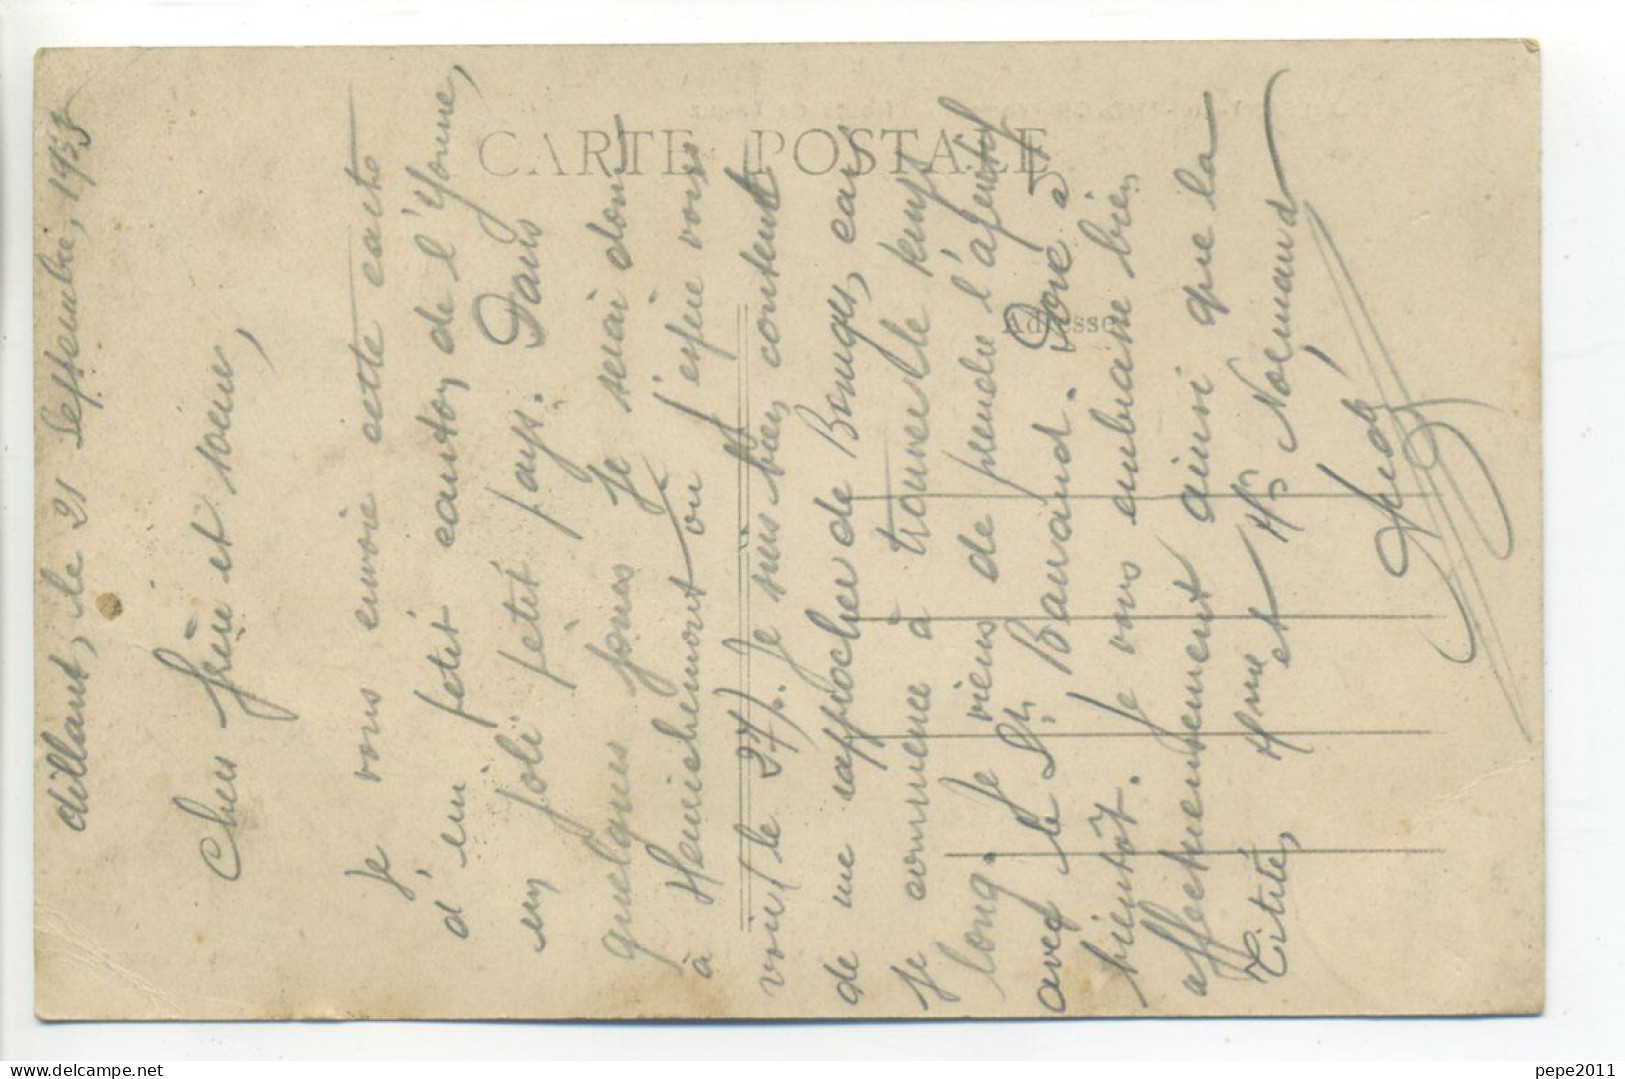 CARTE POSTALE
Adresse
dillant, le 21 Septembre, 1935
Cher frère et sœur,
Je vous envoie cette carte
d'un petit canton de l'Yonne,
un joli petit pays. Dans
quelques jours je serai donc
à Henrichemont où j'espère vous
voir le 27. Je suis bien content
de me rapprocher de Bourges, car
je commence à trouver le temps
long. Je viens de prendre l'apéritif
avec le Dr Bavard. Donc à
bientôt. Je vous embrasse bien
affectueusement ainsi que la
Titite, Mme et Mr Normand
delcampe.net
pepe2011